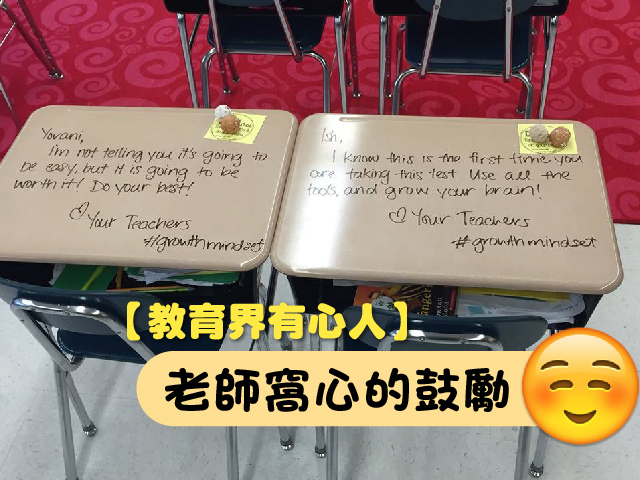 Yovani,
I'm not telling you it's going to
be easy, but it is going to be
worth it! Do your best!
♡ Your Teachers
#growthmindset
Ish,
I know this is the first time you
are taking this test. Use all the
tools, and grow your brain!
♡ Your Teachers
#growthmindset
【教育界有心人】
老師窩心的鼓勵